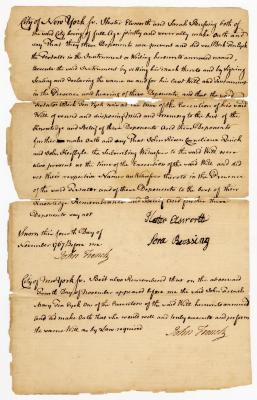 City of New York ss. Hester Elsworth and Sarah Bussing both of
the said City being of full Age jointly and severally make Oath and
say That they these Deponents was present and did see Abra Ten Eyck
the Testator to the Instrument in Writing hereunto annexed named
execute the said Instrument by setting his Mark thereto and by signing
Sealing and Declaring the same as and for his last Will and Testament
in the Presence and hearing of these Deponents And that the said
Testator Abra Ten Eyck was at the time of the Execution of his said
Will of sound and disposing Mind and memory to the best of the
Knowledge and Belief of these Deponents And these Deponents
further make Oath and say That
and John the Subscribing Witnesses to the said Will were
also present at the time of the Execution of the said Will and did
set their respective Names as Witnesses thereto in the Presence
of the said Testator and of these Deponents to the best of their
Knowledge Remembrance and Belief And further these
Deponents say not
Hester Elsworth
Sera Bussing
Sworn this fourth Day of
November 1767 Before me
John French
City of New York ss. Be it also Remembered that on the above said
fourth Day of November appeared before me the said John French
Mary Ten Eyck One of the Executors of the said Will hereunto annexed
and did make Oath that she would well and truly execute and perform
the same Will as by Law required
John French